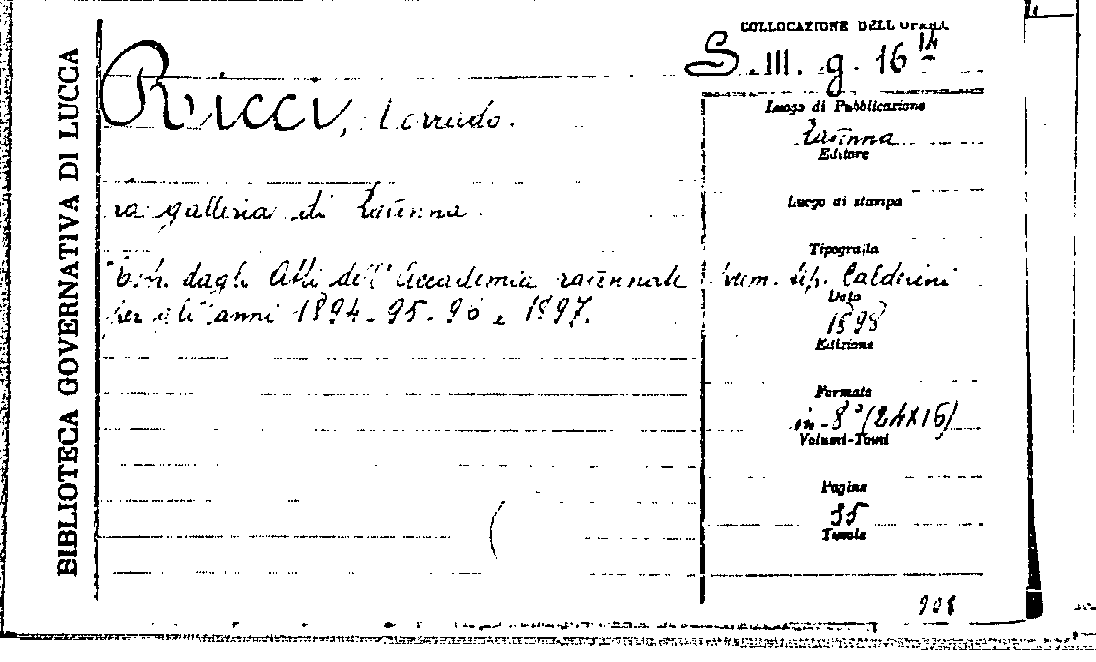 BIBLIOTECA GOVERNATIVA DI LUCCA
COLLOCAZIONE DELL'OPERA
S. III. g. 16 14
Ricci, Corrado.
Luogo di Pubblicazione
Ravenna
Editore
La galleria di Ravenna
Luogo di stampa
Tipografia
dagli Atti dell'Accademia ravennate
tip. Calderini
per gli anni 1894-95-96 e 1897.
Data
1898
Edizione
Formato
in-8° (24X16)
Volumi-Tomi
Pagine
35
Tavole